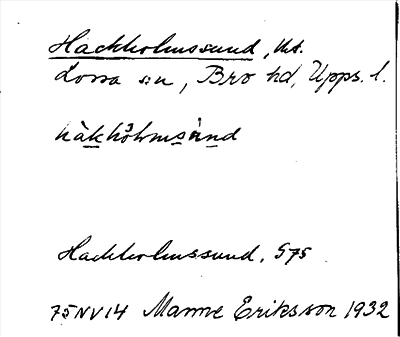 Hackholmssund, ht.
Lossa sn, Bro hd, Upps. l.
hàkhólmsùnd
Hackholmssund, S75
75NV14 Manne Eriksson 1932